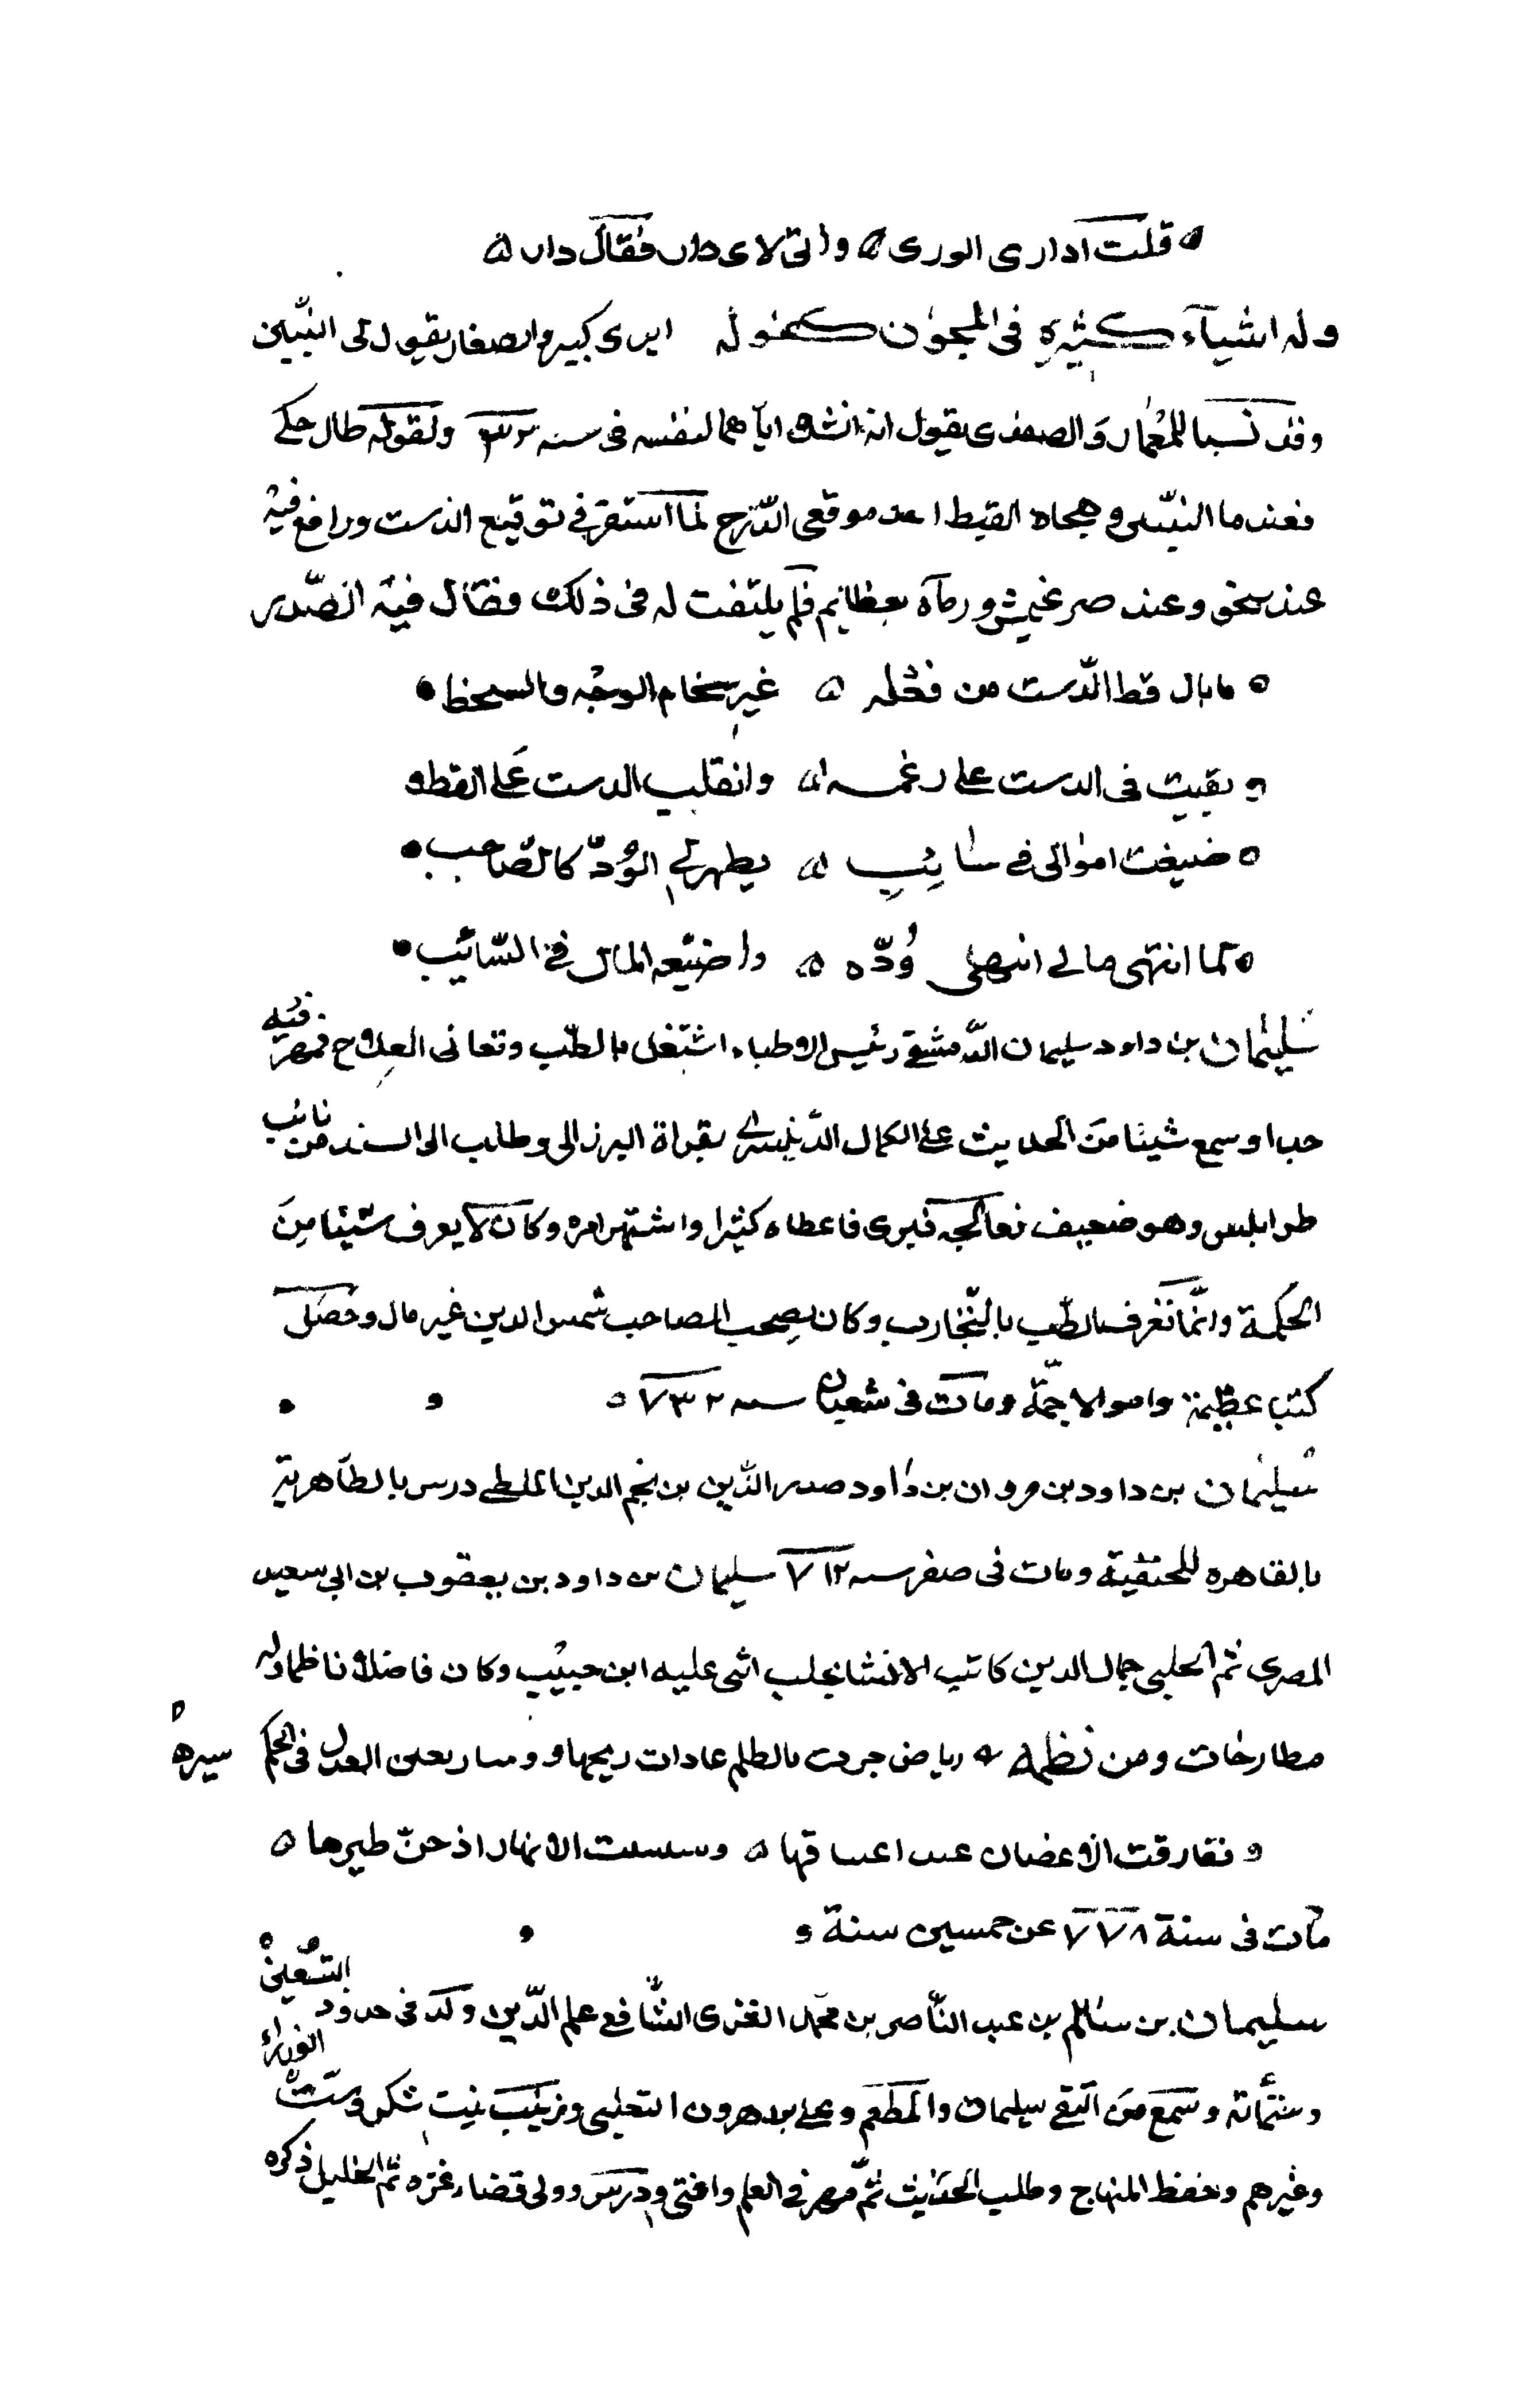 قلت اداري الورى والتى لاى دار فقال دار
وله اشياء كثيرة فى المجون كقوله ايرى كبير والصغار يقول لى البيتين
وقد نسبا للمعمار والصفدى يقول انه انشده اياهما لنفسه فى سنه ولقوله طال حكى
فعندما البيتين وهجاه القيط احد موقعى الدرج لما استقر فى توقيع الدست ورافع فيه
عند شيخو وعند صرغتمش ورماه بعظايم فلم يلتفت له فى ذلك فقال فيه الصدر
ما بال قط الدست من فعله غير سخام الوجه والسخط
بقيت فى الدست على رغمه وانقلب الدست على القط
ضيعت اموالى فى سائب يظهر لى الود كالصاحب
لما انتهى مالى انتهى وده واضيعه المال فى السائب
سليمان بن داود سليمان الدمشقى رئيس الاطباء اشتغل بالطب وتعانى العلاج فمهر فيه
جدا وسمع شيئا من الحديث على الكمال بقراة البرزالى وطلب الى السند من نائب
طرابلس وهو ضعيف فعالجه فبرى فاعطاه كثيرا واشتهر امره وكان لا يعرف شيئا من
الحكمة وانما تعرف الطب بالتجارب وكان يصحب الصاحب شمس الدين غبريال وحصل
كتبا عظيمة واموالا جمة ومات فى شعبان سنه ٧٣٢
سليمان بن داود بن مروان بن داود صدر الدين بن نجم الدين الملطى درس بالظاهرية
بالقاهره للحنفية ومات فى صفر سنه ٧١٢ سليمان بن داود بن يعقوب بن ابى سعيد
المصرى ثم الحلبى جمال الدين كاتب الانشا بحلب اثنى عليه ابن حبيب وكان فاضلا ناظما وله
مطارحات ومن نظمه رياض جرت بالظلم عادات ريحها وسار بعين العدل فى الحكم سيرها
ففارقت الاغصان عند اعتناقها وسلسلت الانهار اذ حن طيرها
مات فى سنة ٧٧٨ عن خمسين سنة
سليمان بن سالم بن عبد الناصر بن محمد الغزى الشافعى علم الدين ولد فى حدود التسعين
وستمائة وسمع من التقى سليمان والمطعم وعلى بن هرون الثعلبى وزينب بنت شكر وست الوزراء
وغيرهم وحفظ المنهاج وطلب الحديث ثم مهر فى العلم وافتى ودرس وولى قضاء غزه ثم الخليل ذكره